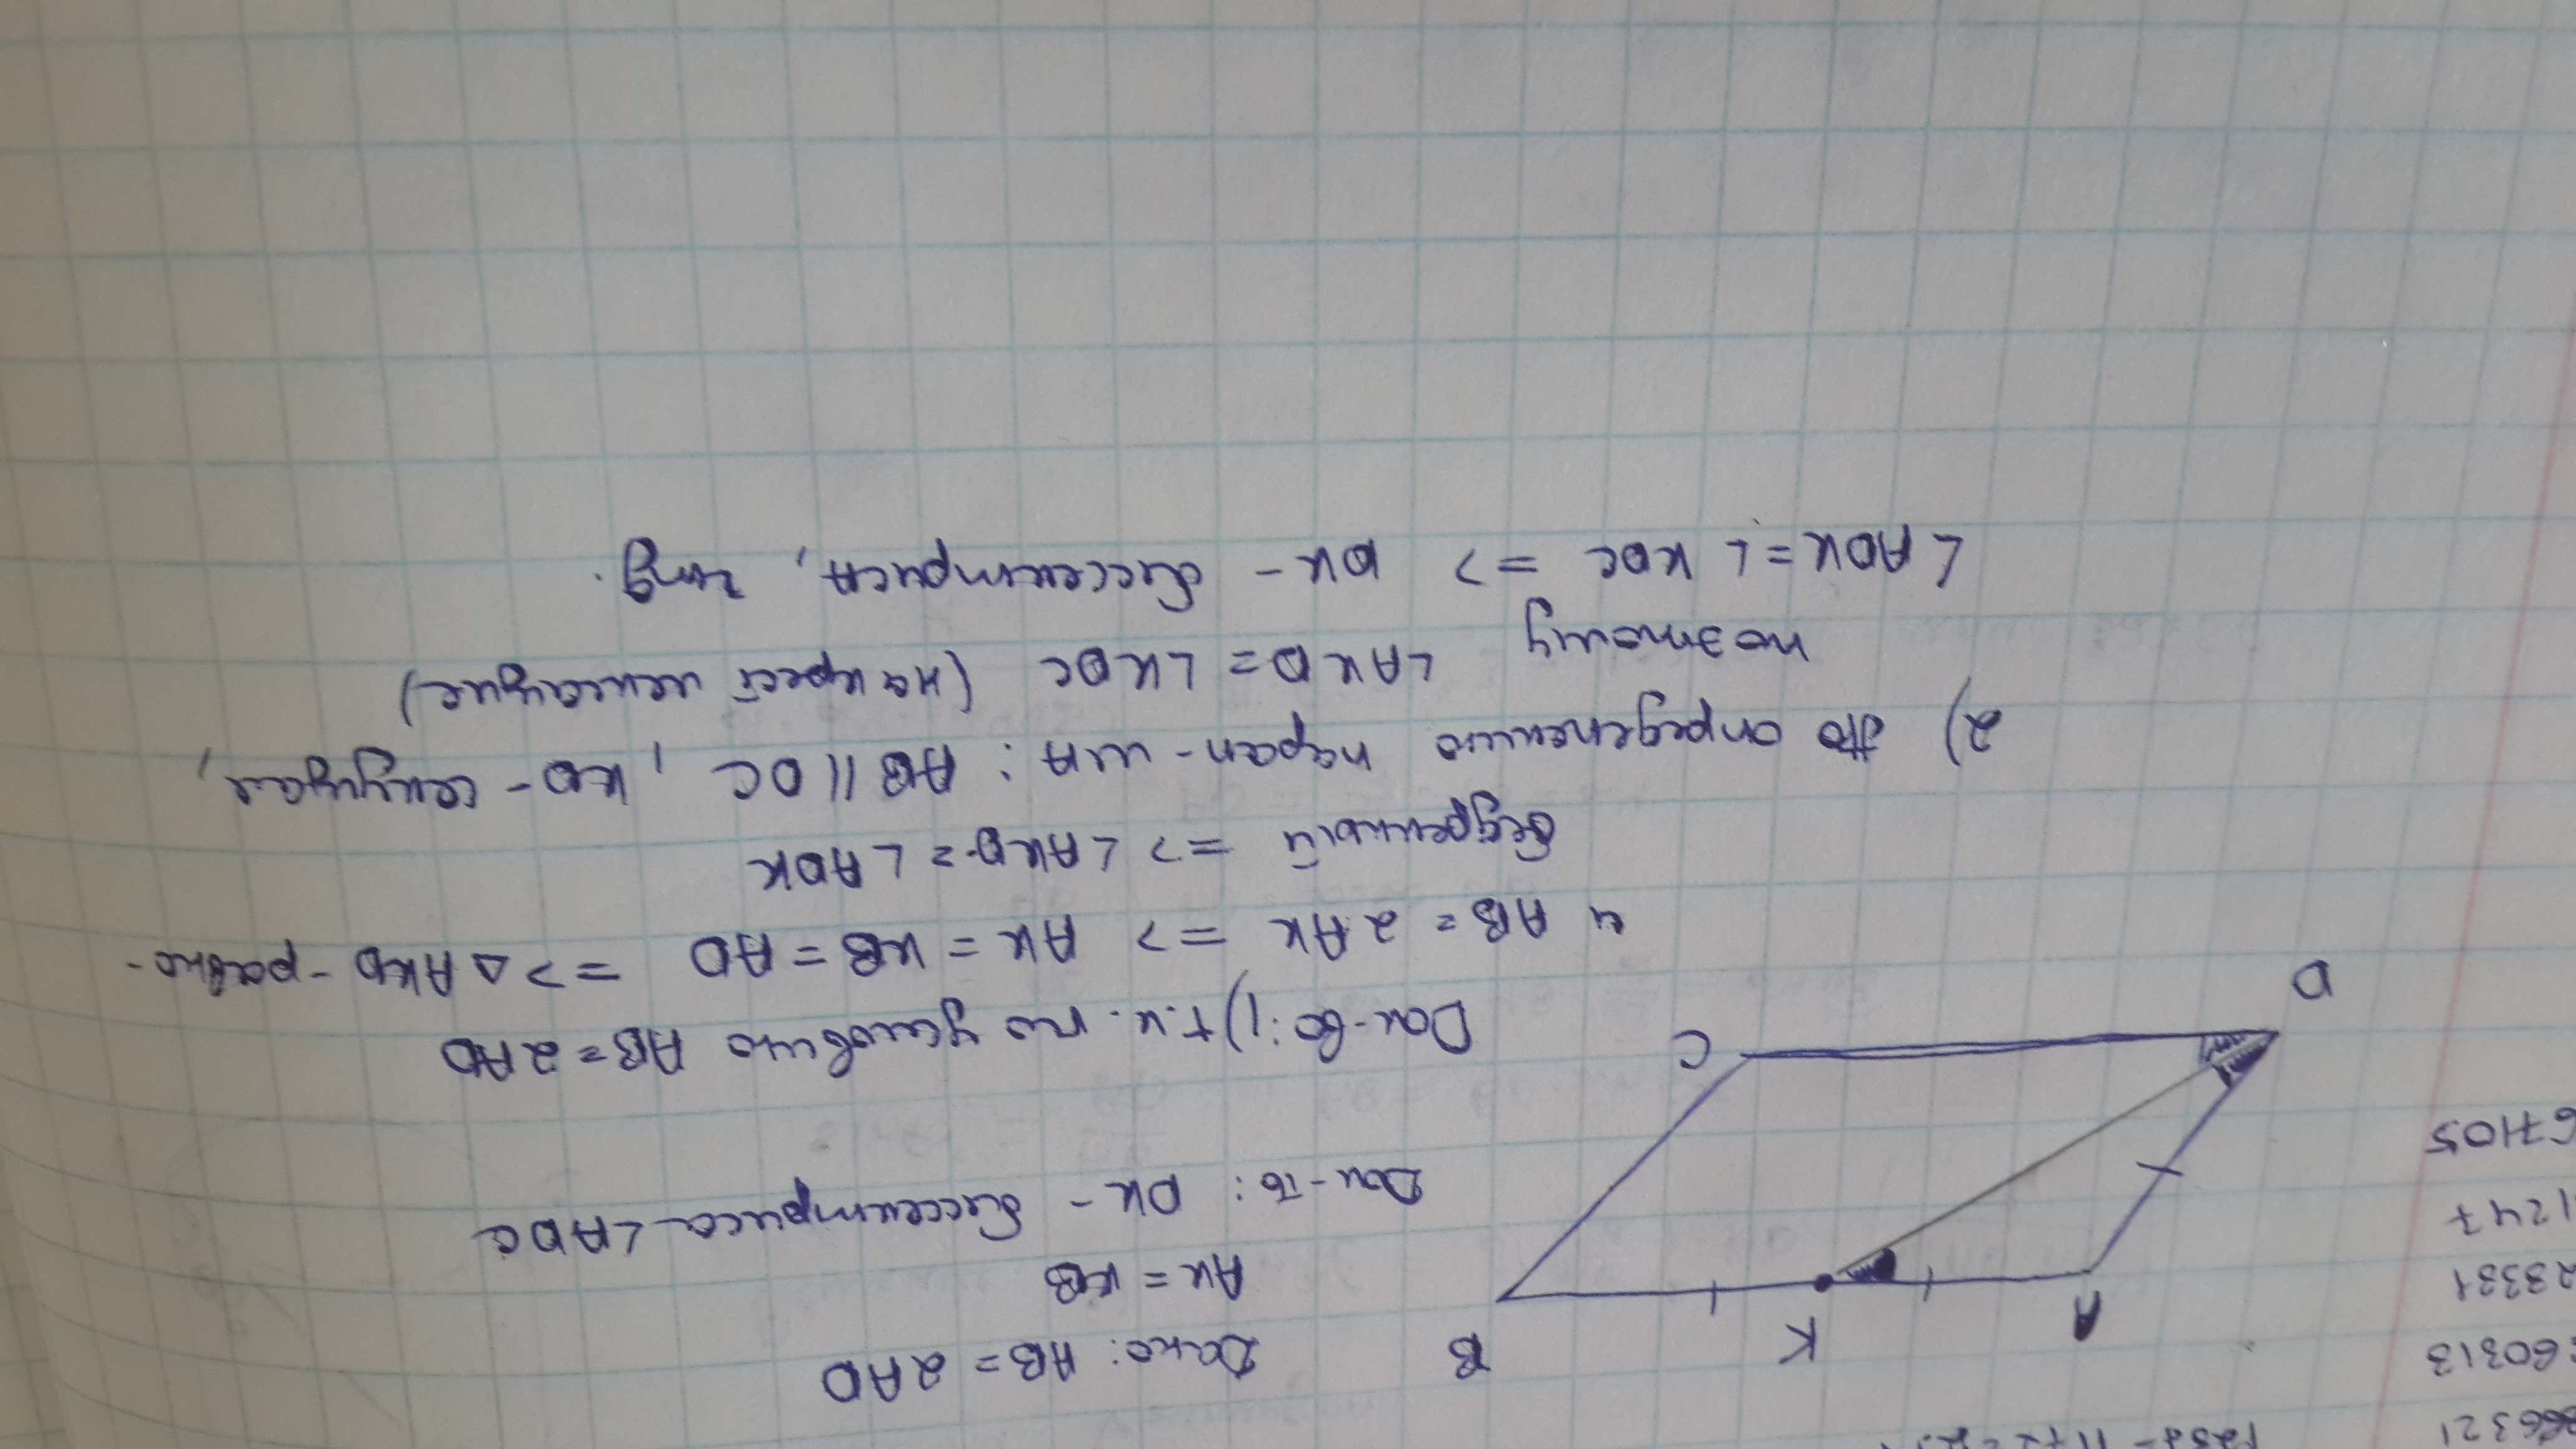 66321
60313
23331
1247
67105
A
K
B
C
D
Дано: AB = 2AD
AK = KB
Док-ть: DK - биссектриса ∠ADC
Док-во: 1) т.к. по условию AB = 2AD
и AB = 2AK => AK = KB = AD => △ AKD - равно-
бедренный => ∠AKD = ∠ADK
2) По определению парал-ма: AB || DC, KD - секущая,
поэтому ∠AKD = ∠KDC (накрест лежащие)
∠ADK = ∠KDC => DK - биссектриса, чтд.